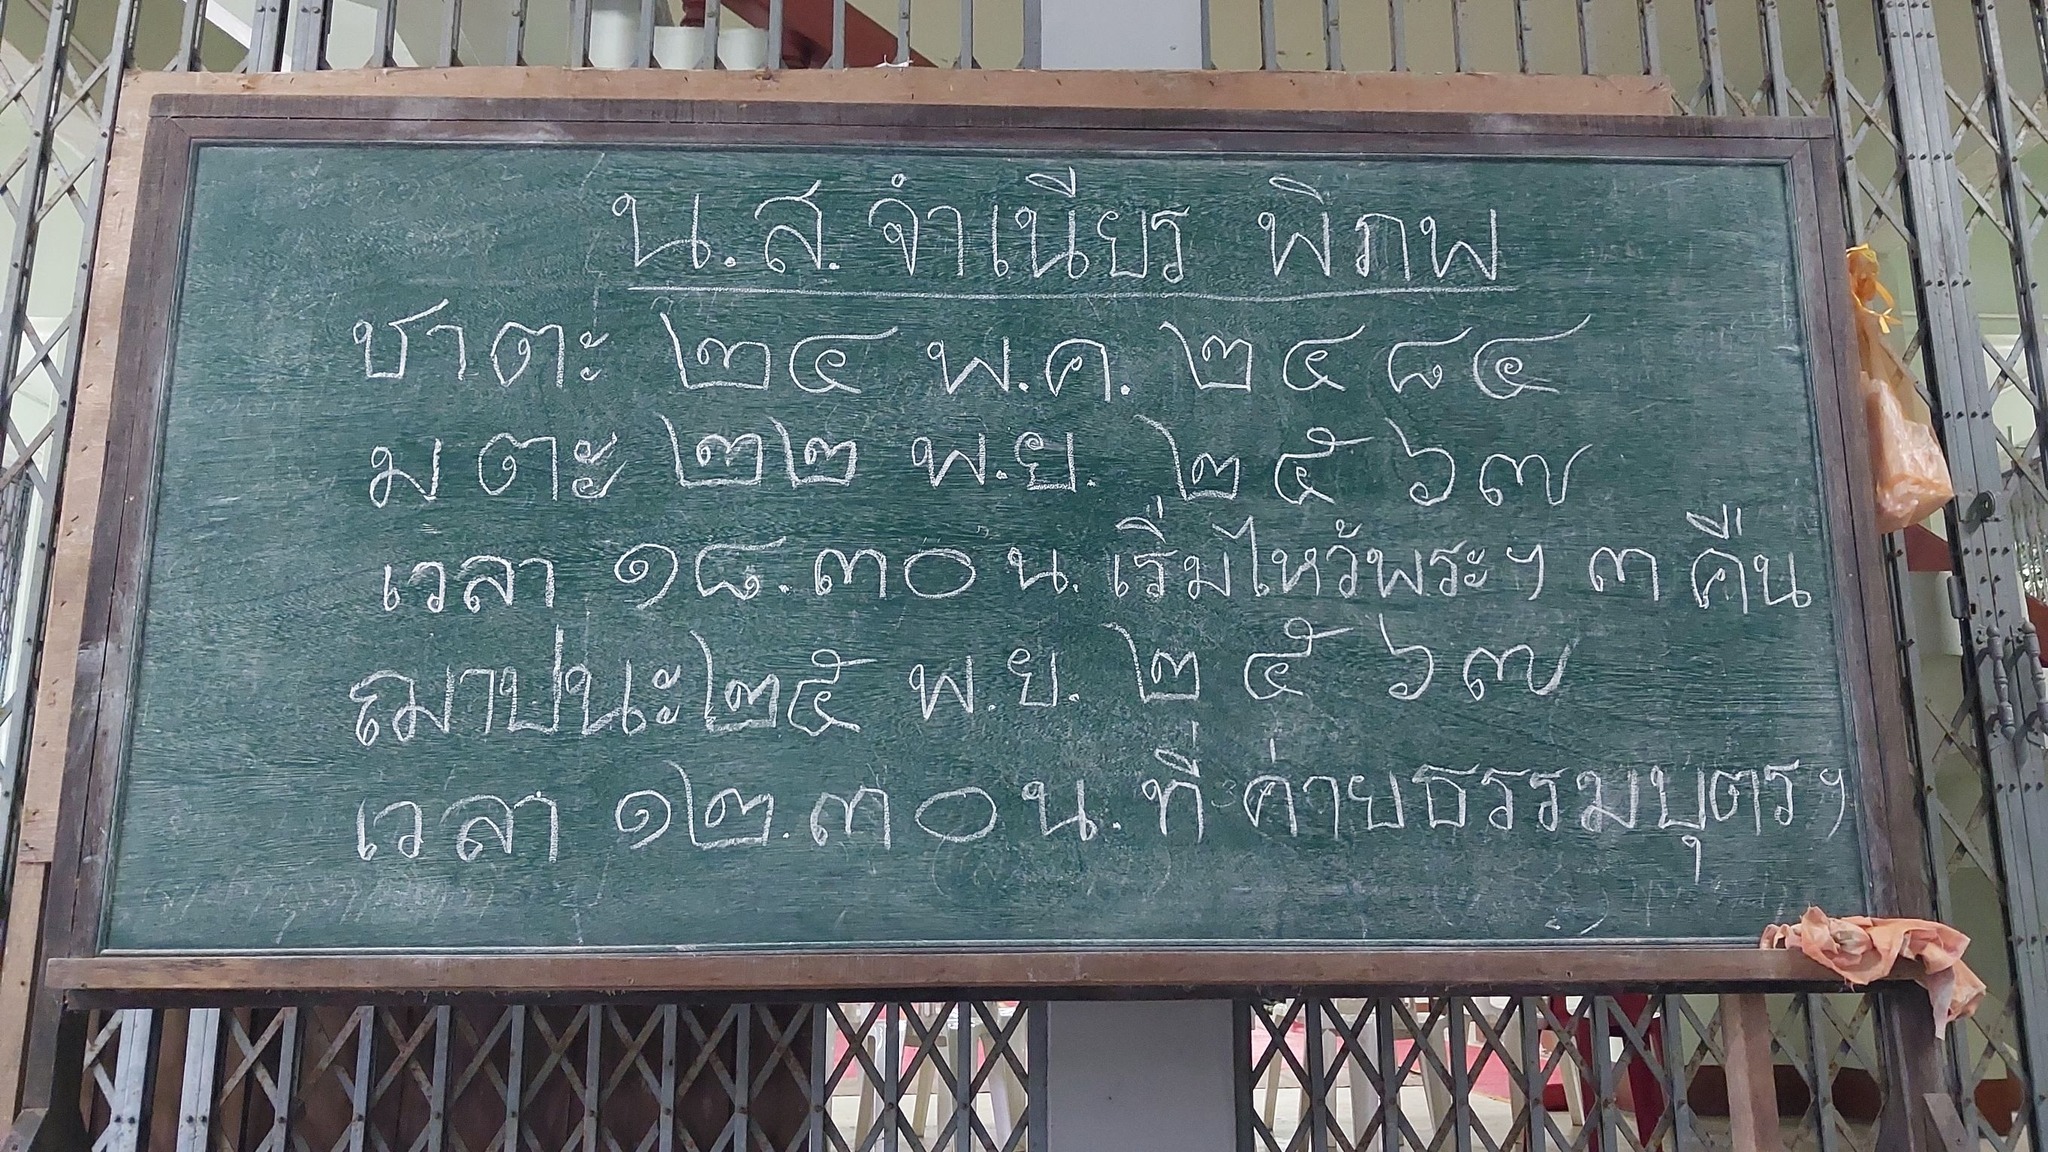 น.ส. จำเนียร พิภพ
ชาตะ ๒๔ พ.ค. ๒๔๘๔
มตะ ๒๒ พ.ย. ๒๕๖๗
เวลา ๑๘.๓๐ น. เริ่มไหว้พระฯ ๓ คืน
ฌาปนะ ๒๕ พ.ย. ๒๕๖๗
เวลา ๑๒.๓๐ น. ที่ ค่ายธรรมบุตรฯ